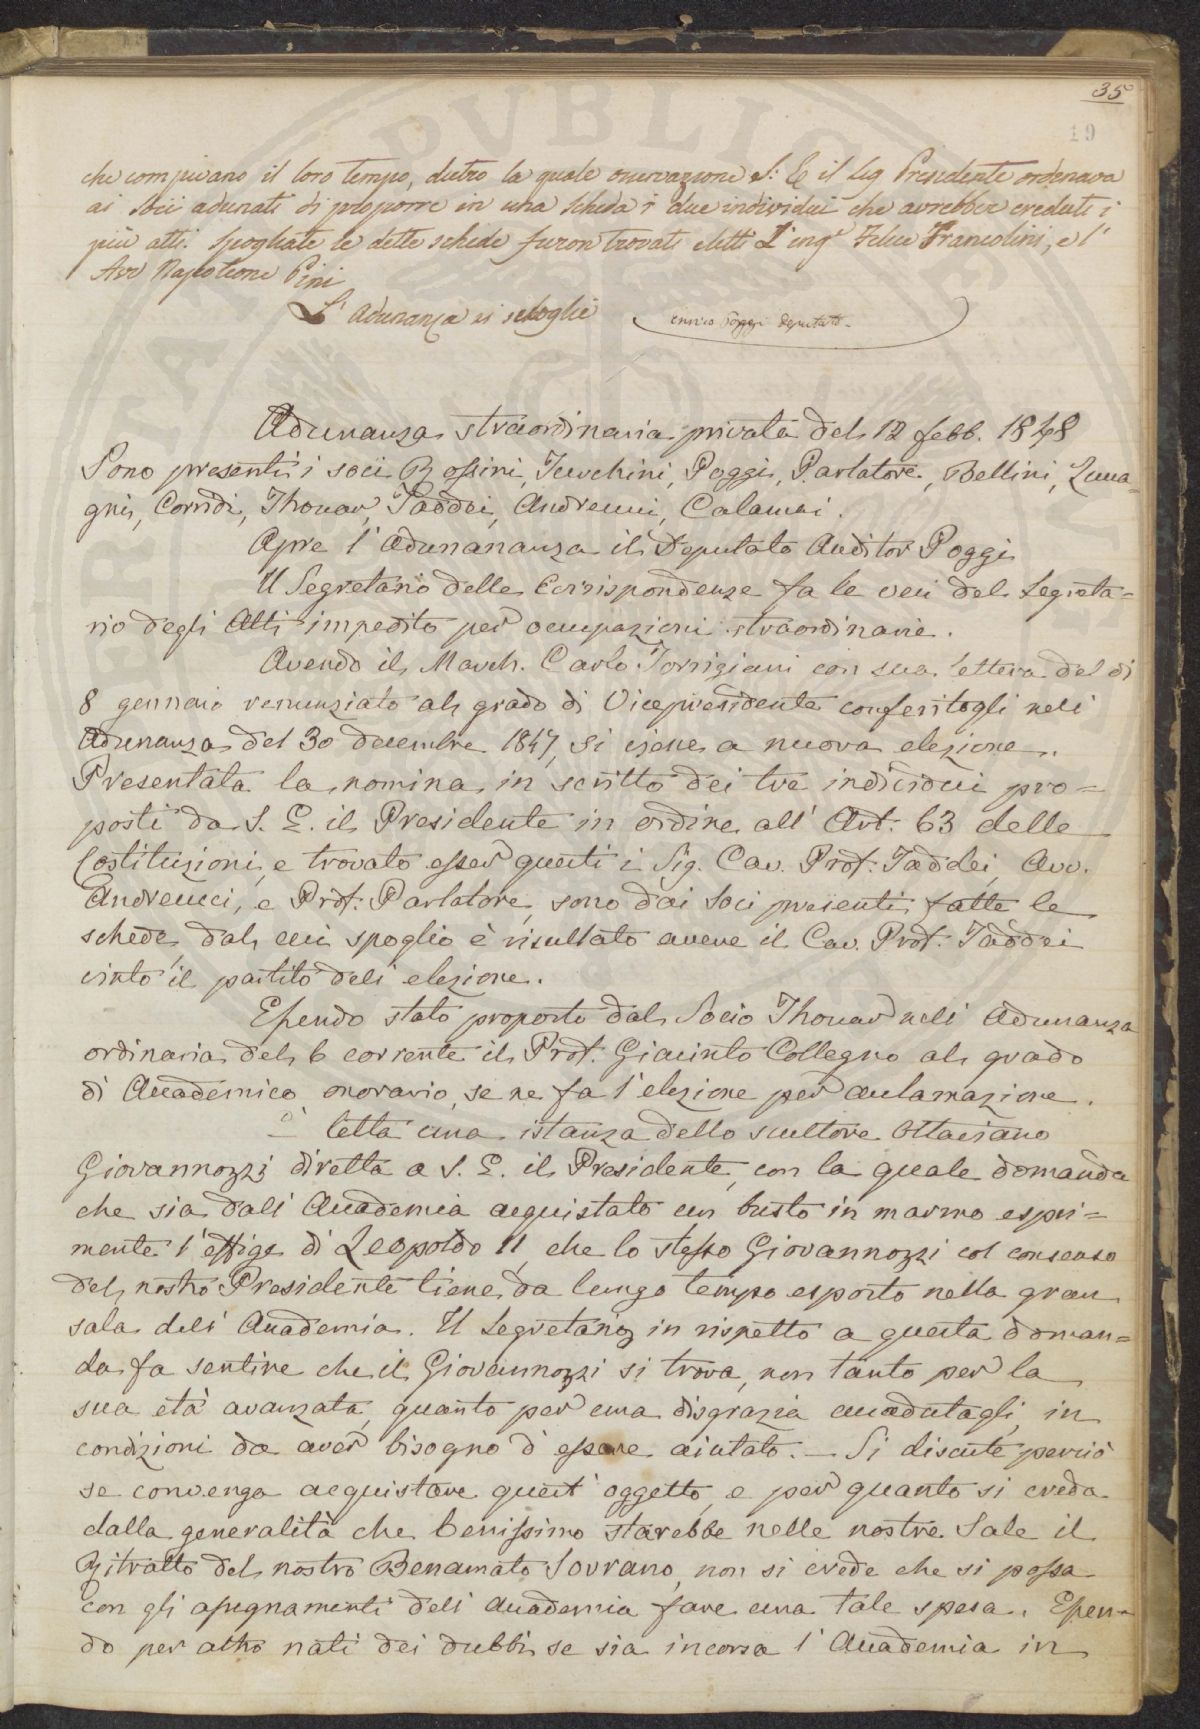 35
19
che compivano il loro tempo, dietro la quale osservazione S: E il Sig Presidente ordinava
ai Socii adunati di proporre in una scheda i due individui che avrebber creduti i
più atti. Spogliate le dette schede furon trovati eletti L'ingr Felice Francolini, e l'
Avv Napoleone Pini
L'adunanza si scioglie
enrico Poggi Deputato
Adunanza straordinaria privata del 12 febb. 1848
Sono presenti i socii Rossini, Jecchini, Poggi, Parlatore, Bellini,
Corridi, Thouar, Taddei, Andreucci, Calamai.
Apre l'adunananza il Deputato Auditor Poggi
Il Segretario delle Corrispondenze fa le veci del Segreta=
rio degli Atti impedito per occupazioni straordinarie.
Avendo il March. Carlo Torrigiani con sua lettera del dì
8 gennaio renunziato al grado di Vicepresidente conferitogli nell'
Adunanza del 30 decembre 1847, si viene a nuova elezione.
Presentata la nomina in scritto dei tre individui pro=
posti da S. E. il Presidente in ordine all' Art. 63 delle
Costituzioni, e trovato esser questi i Sig. Cav. Prof. Taddei, Avv.
Andreucci, e Prof. Parlatore, sono dai Soci presenti fatte le
schede, dal cui spoglio è risultato avere il Cav. Prof. Taddei
vinto il partito dell' elezione.
Essendo stato proposto dal Socio Thouar nell' Adunanza
ordinaria del 6 corrente il Prof. Giacinto Collegno al grado
di Accademico onorario, se ne fa l'elezione per acclamazione.
È letta una istanza dello scultore Ottaviano
Giovannozzi diretta a S. E. il Presidente, con la quale domanda
che sia dall' Accademia acquistato un busto in marmo espri=
mente l'effige di Leopoldo II, che lo stesso Giovannozzi col consenso
del nostro Presidente tiene da lungo tempo esposto nella gran
sala dell' Accademia. Il Segretario in rispetto a questa doman=
da fa sentire che il Giovannozzi si trova, non tanto per la
sua età avanzata, quanto per una disgrazia accadutagli, in
condizioni da aver bisogno d'essere aiutato. — Si discute perciò
se convenga acquistare quest' oggetto, e per quanto si creda
dalla generalità che benissimo starebbe nelle nostre Sale il
Ritratto del nostro Benamato Sovrano, non si crede che si possa
con gli assegnamenti dell' Accademia fare una tale spesa. Essen=
do per altro nati dei dubbi se sia incorsa l'Accademia in